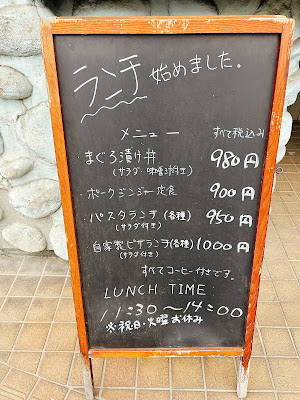 ランチ 始めました。
メニュー すべて税込み
・まぐろ漬け丼 980円
(サラダ・味噌汁付き)
・ポークジンジャー定食 900円
パスタランチ(各種) 950円
(サラダ付き)
自家製ピザランチ(各種) 1000円
(サラダ付き)
すべてコーヒー付きです。
LUNCH TIME:
11:30〜14:00
※祝日・火曜お休み